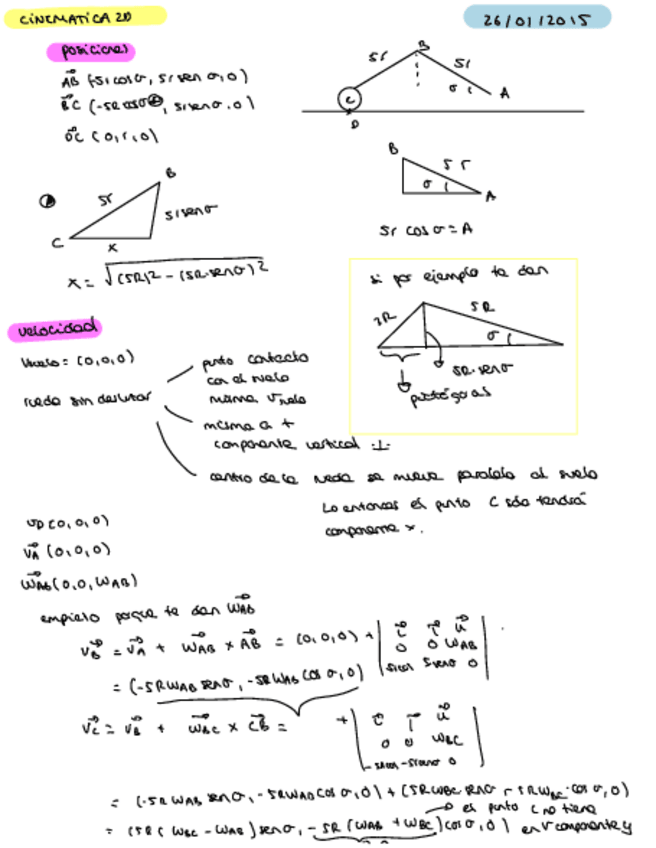 CINEMATICA 2D
26/01/2015
posiciones
AB (-5r cosσ, 5r sen σ, 0)
BC (-5R cosσ, 5r senσ, 0)
OC (0, r, 0)
B
5r
5r
σ
A
C
D
B
5r
σ
A
5r cos σ = A
B
5r
5r senσ
C
x
x = √(5R)² - (5R·senσ)²
si por ejemplo te dan
3R
5R
σ
5R·senσ
pitágoras
velocidad
Vsuelo = (0,0,0)
rueda sin deslizar
punto contacto
con el suelo
misma Vsuelo
misma a t
componente vertical ⊥
centro de la rueda se mueve paralelo al suelo
Lo entonces el punto C solo tendrá
componente x.
VD (0,0,0)
VA (0,0,0)
WAB (0,0,WAB)
empiezo porque te dan WAB
VB = VA + WAB × AB = (0,0,0) + | i j k |
0 0 WAB
5rcos 5rsenσ 0
= (-5RWAB senσ, -5RWAB cos σ, 0)
VC = VB + WBC × CB = + | i j k |
0 0 WBC
-5rcos -5rsenσ 0
= (-5R WAB senσ, -5RWAB cos σ, 0) + (5RWBC senσ, -5RWBC·cos σ, 0)
el punto C no tiene
= (5R(WBC - WAB) senσ, -5R (WAB + WBC) cos σ, 0) en V componente y